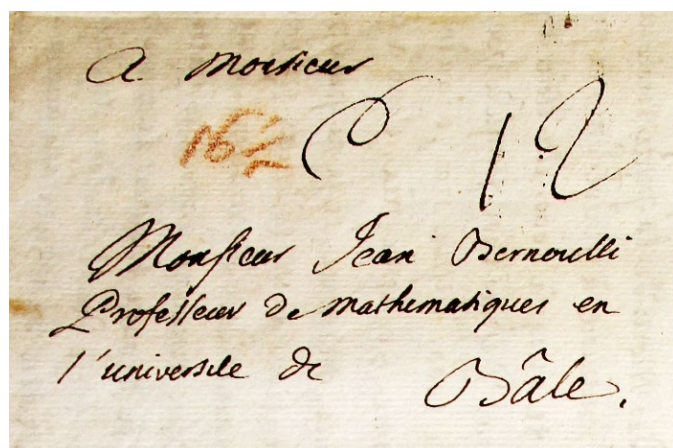 A Monsieur
16½ 12
Monsieur Jean Bernoulli
Professeur De Mathematiques en
l'université de
Bâle.